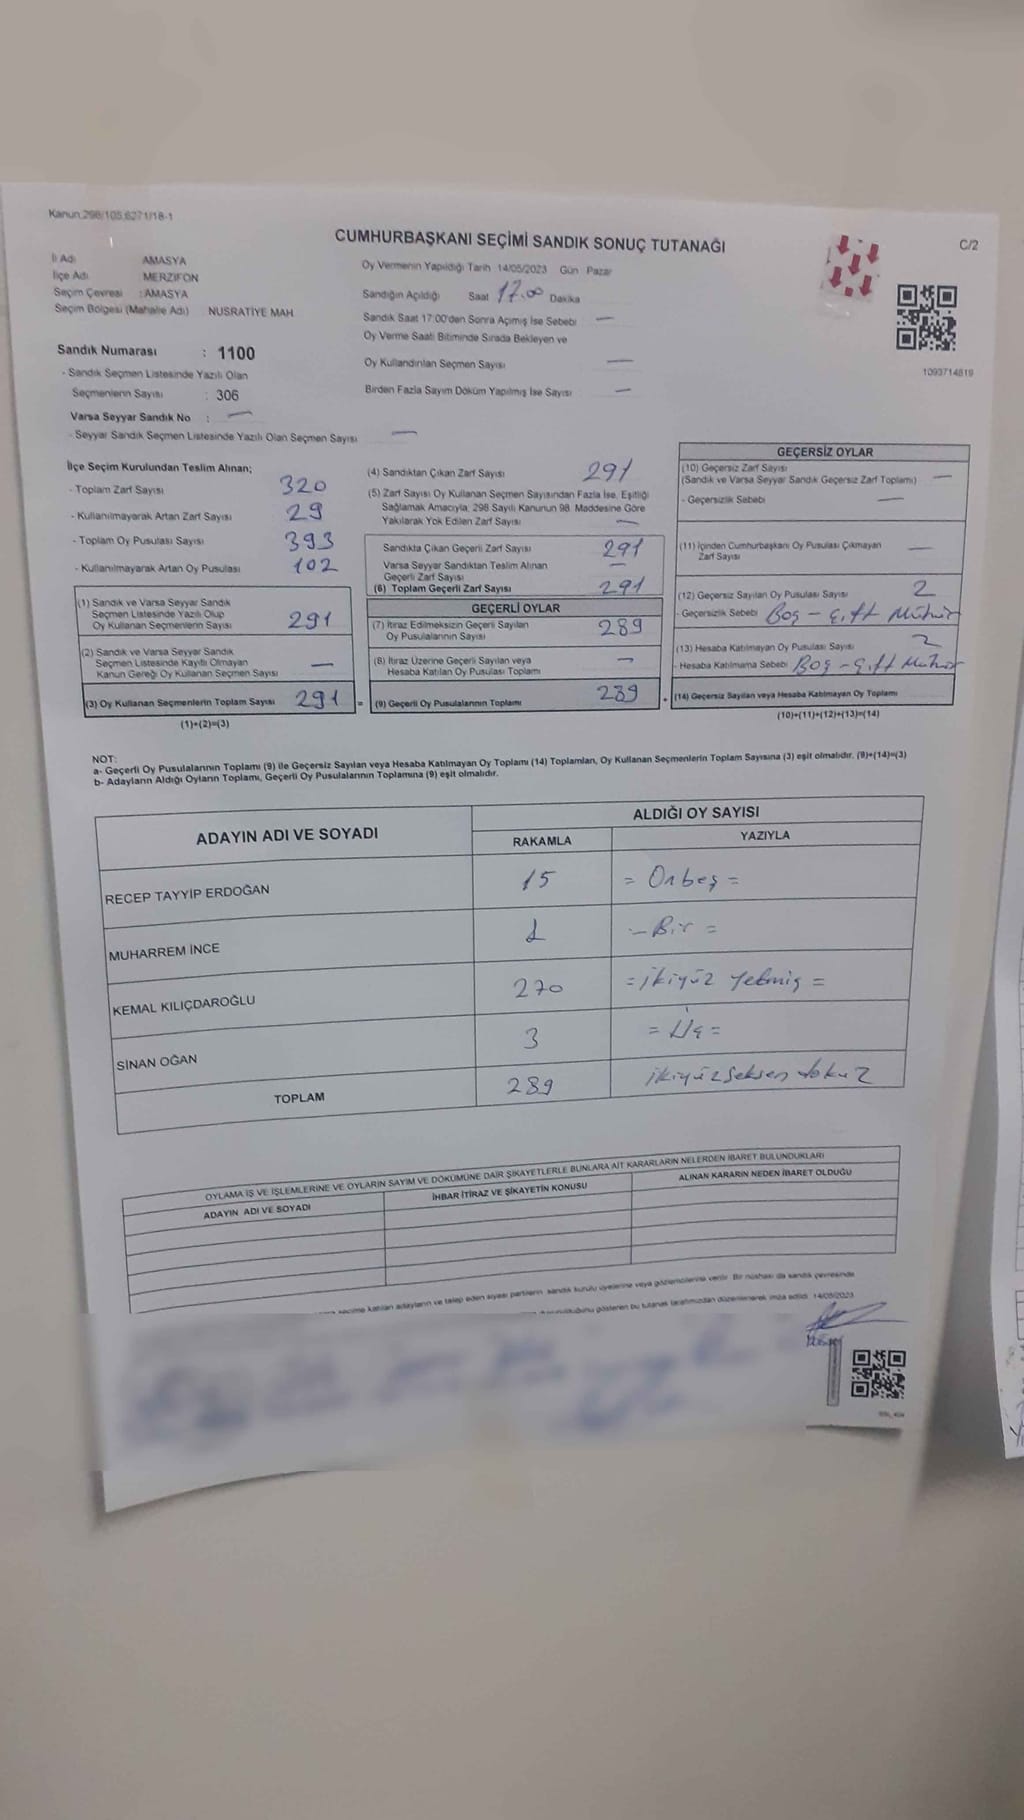 Kanun.298/105,6271/18-1
CUMHURBAŞKANI SEÇİMİ SANDIK SONUÇ TUTANAĞI
C/2
İl Adı AMASYA
İlçe Adı MERZİFON
Seçim Çevresi : AMASYA
Seçim Bölgesi (Mahalle Adı) NUSRATİYE MAH
Sandık Numarası : 1100
- Sandık Seçmen Listesinde Yazılı Olan
Seçmenlerin Sayısı : 306
Varsa Seyyar Sandık No : —
- Seyyar Sandık Seçmen Listesinde Yazılı Olan Seçmen Sayısı —
Oy Vermenin Yapıldığı Tarih 14/05/2023 Gün Pazar
Sandığın Açıldığı Saat 17.00 Dakika
Sandık Saat 17:00'den Sonra Açımış İse Sebebi —
Oy Verme Saati Bitiminde Sırada Bekleyen ve
Oy Kullandırılan Seçmen Sayısı —
Birden Fazla Sayım Döküm Yapılmış İse Sayısı —
1093714819
İlçe Seçim Kurulundan Teslim Alınan;
- Toplam Zarf Sayısı 320
- Kullanılmayarak Artan Zarf Sayısı 29
- Toplam Oy Pusulası Sayısı 393
- Kullanılmayarak Artan Oy Pusulası 102
(1) Sandık ve Varsa Seyyar Sandık
Seçmen Listesinde Yazılı Olup
Oy Kullanan Seçmenlerin Sayısı 291
(2) Sandık ve Varsa Seyyar Sandık
Seçmen Listesinde Kayıtlı Olmayan
Kanun Gereği Oy Kullanan Seçmen Sayısı —
(3) Oy Kullanan Seçmenlerin Toplam Sayısı 291 =
(1)+(2)=(3)
(4) Sandıktan Çıkan Zarf Sayısı 291
(5) Zarf Sayısı Oy Kullanan Seçmen Sayısından Fazla İse, Eşitliği
Sağlamak Amacıyla, 298 Sayılı Kanunun 98. Maddesine Göre
Yakılarak Yok Edilen Zarf Sayısı —
Sandıkta Çıkan Geçerli Zarf Sayısı 291
Varsa Seyyar Sandıktan Teslim Alınan
Geçerli Zarf Sayısı —
(6) Toplam Geçerli Zarf Sayısı 291
GEÇERLİ OYLAR
(7) İtiraz Edilmeksizin Geçerli Sayılan
Oy Pusulalarının Sayısı 289
(8) İtiraz Üzerine Geçerli Sayılan veya
Hesaba Katılan Oy Pusulası Toplamı —
(9) Geçerli Oy Pusulalarının Toplamı 289 +
GEÇERSİZ OYLAR
(10) Geçersiz Zarf Sayısı
(Sandık ve Varsa Seyyar Sandık Geçersiz Zarf Toplamı) —
- Geçersizlik Sebebi —
(11) İçinden Cumhurbaşkanı Oy Pusulası Çıkmayan
Zarf Sayısı —
(12) Geçersiz Sayılan Oy Pusulası Sayısı 2
- Geçersizlik Sebebi Boş - Çift Mühür
(13) Hesaba Katılmayan Oy Pusulası Sayısı 2
- Hesaba Katılmama Sebebi Boş - Çift Mühür
(14) Geçersiz Sayılan veya Hesaba Katılmayan Oy Toplamı
(10)+(11)+(12)+(13)=(14)
NOT:
a- Geçerli Oy Pusulalarının Toplamı (9) ile Geçersiz Sayılan veya Hesaba Katılmayan Oy Toplamı (14) Toplamları, Oy Kullanan Seçmenlerin Toplam Sayısına (3) eşit olmalıdır. (9)+(14)=(3)
b- Adayların Aldığı Oyların Toplamı, Geçerli Oy Pusulalarının Toplamına (9) eşit olmalıdır.
ADAYIN ADI VE SOYADI
ALDIĞI OY SAYISI
RAKAMLA YAZIYLA
RECEP TAYYİP ERDOĞAN 15 = Onbeş =
MUHARREM İNCE 1 - Bir =
KEMAL KILIÇDAROĞLU 270 = ikiyüz Yetmiş =
SİNAN OĞAN 3 = Üç =
TOPLAM 289 ikiyüzseksen dokuz
OYLAMA İŞ VE İŞLEMLERİNE VE OYLARIN SAYIM VE DÖKÜMÜNE DAİR ŞİKAYETLERLE BUNLARA AİT KARARLARIN NELERDEN İBARET BULUNDUKLARI
ADAYIN ADI VE SOYADI İHBAR İTİRAZ VE ŞİKAYETİN KONUSU ALINAN KARARIN NEDEN İBARET OLDUĞU
seçime katılan adayların ve talep eden siyasi partilerin sandık kurulu üyelerine veya gözlemcilerine verilir. Bir nüshası da sandık çevresinde
gösteren bu tutanak tarafımızdan düzenlenerek imza edildi. 14/05/2023